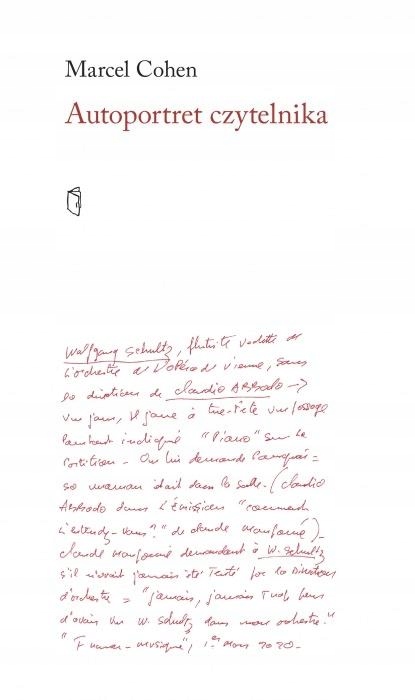 Marcel Cohen
Autoportret czytelnika
Wolfgang Schultz, flûtiste vedette de
L'orchestre de l'Opéra de Vienne, sous
la direction de Claudio ABBADO →
un jour, il joue à tue-tête un passage
pourtant indiqué "Piano" sur la
Partition - On lui demande Pourquoi =
sa maman était dans la salle - (Claudio
ABBADO dans l'émission "comment
l'entendez-vous?" de Claude Maupomé) -
Claude Maupomé demandant à W. Schultz
s'il n'avait jamais été Tenté par la Direction
d'orchestre = "jamais, jamais Trop peur
d'avoir un W. Schultz dans mon orchestre."
"France-musique", 1er Mars 2020-